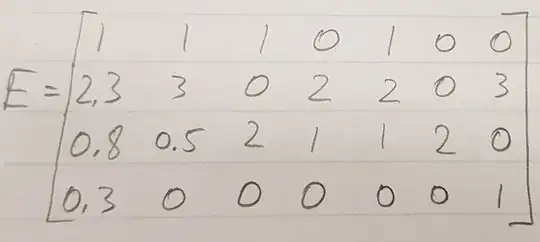 1 1 1 0 1 0 0
E = 2,3 3 0 2 2 0 3
0,8 0.5 2 1 1 2 0
0,3 0 0 0 0 0 1